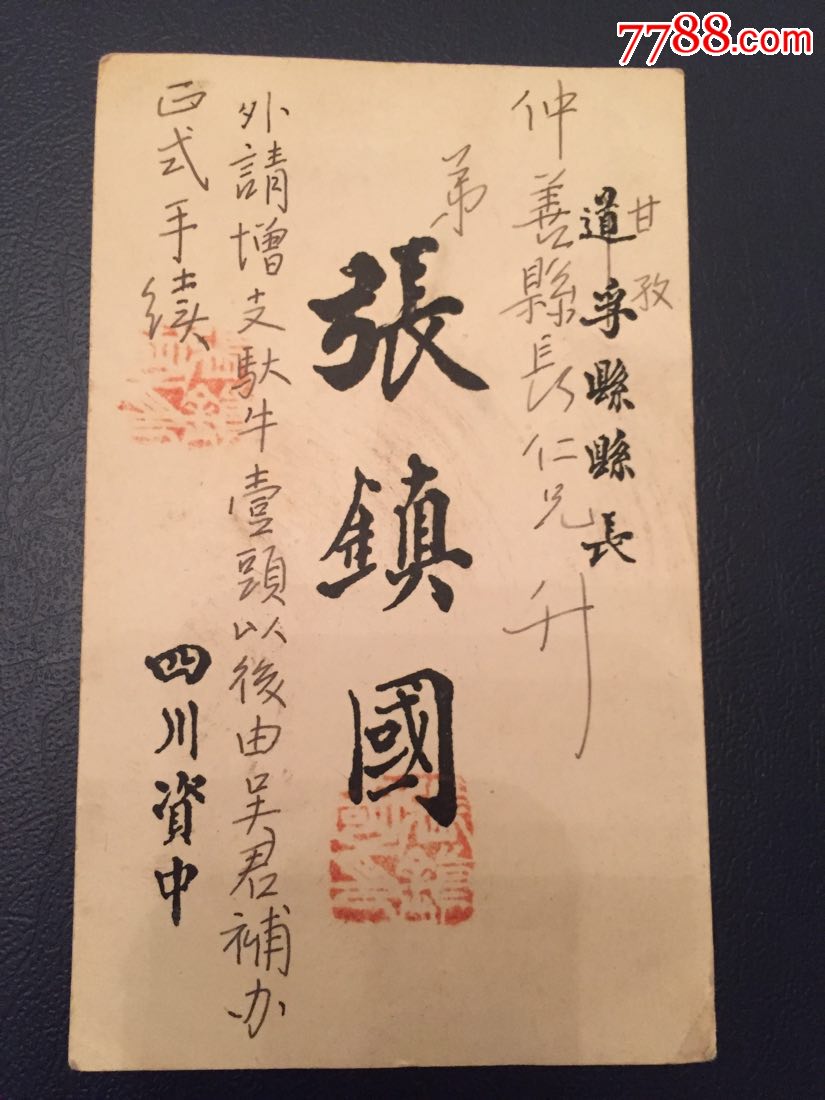 7788.com
甘孜
道孚縣縣長
仲善縣長仁兄升
弟
張鎮國
外請增支馱牛壹頭以後由吴君補办
正式手续
四川資中